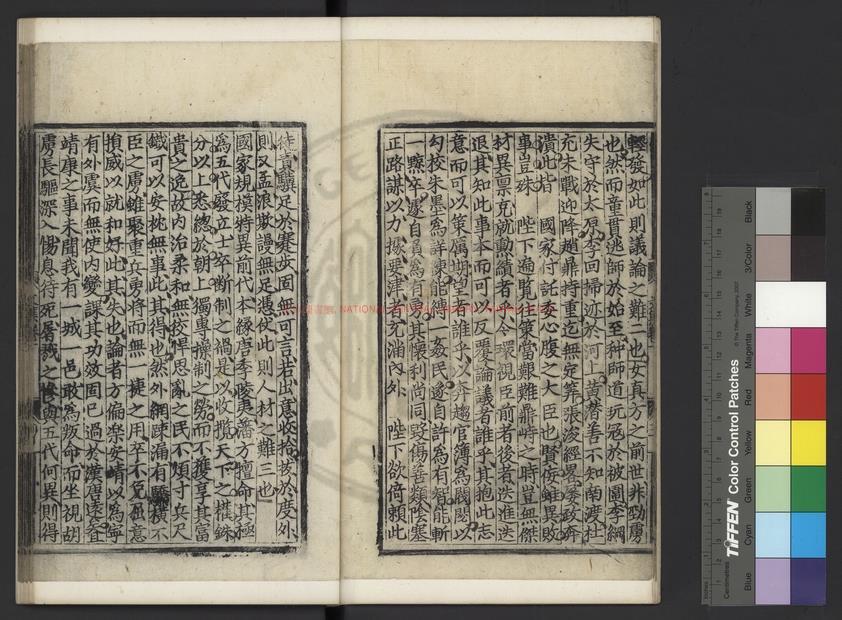 輕發如此則議論之難二也女真方之前世非勁虜
也然而童貫逃師於始至种師道玩寇於被圍李綱
失守於太原李回掃迹於河上黃潛善不知南渡杜
充未戰迎降趙鼎持重迄無定算張浚經畧屢致奔
潰此皆 國家付託委心腹之大臣也賢愚雖異敗
事豈殊 陛下遍覽古策當艱難鼎峙之時豈無傑
材異稟克就勲績者乎今環視臣前者後者迭進迭
退其知此事本而可以反覆論議者誰乎其抱此志
意而可以策厲期望者誰乎以奔趨官簿為閥閱以
勾校朱墨為詳東能縛一姦民遂自許為有智能斬
一黥卒遂自負為有勇其懷利尚同毀傷善類噂塞
正路謀以力據要津者充滿內外 陛下欲倚賴此
徒責驥足於蹇步固無可言若出意收拾拔於度外
則又孟浪欺謾無足憑仗此則人材之難三也
國家規模特異前代本緣唐季陵夷藩方擅命其極
為五代廢立士卒斷制之禍是以收攬天下之權銖
分以上悉總於朝上獨專操制之勞而下獲享其富
貴之逸故内治柔和無狡悍思亂之民不煩寸兵尺
鐵可以安枕無事此其得也然外網疎漏有驕横不
臣之虜雖聚重兵勇將而無一捷之用卒不免屈意
損威以就和好此其失也論者方偏樂安靖以為寧
有外虞而無使内變課其功效固已過於漢唐遠矣且
靖康之事未聞我有一城一邑敢為叛命而坐視胡
虜長驅深入惕息待死屠戮之慘與五代何異則得
NATIONAL